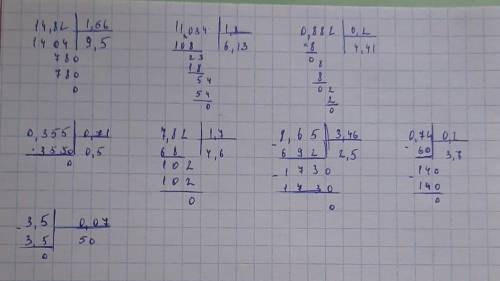 14,82 1,56
1404 9,5
780
780
0
11,034 1,8
108 6,13
23
18
54
54
0
0,882 0,2
8 4,41
0 8
8
02
2
0
0,355 0,71
-3550 0,5
0
7,82 1,7
68 4,6
102
102
0
8,65 3,46
- 692 2,5
- 1730
1730
0
0,74 0,2
- 60 3,7
- 140
140
0
- 3,5 0,07
3,5 50
0